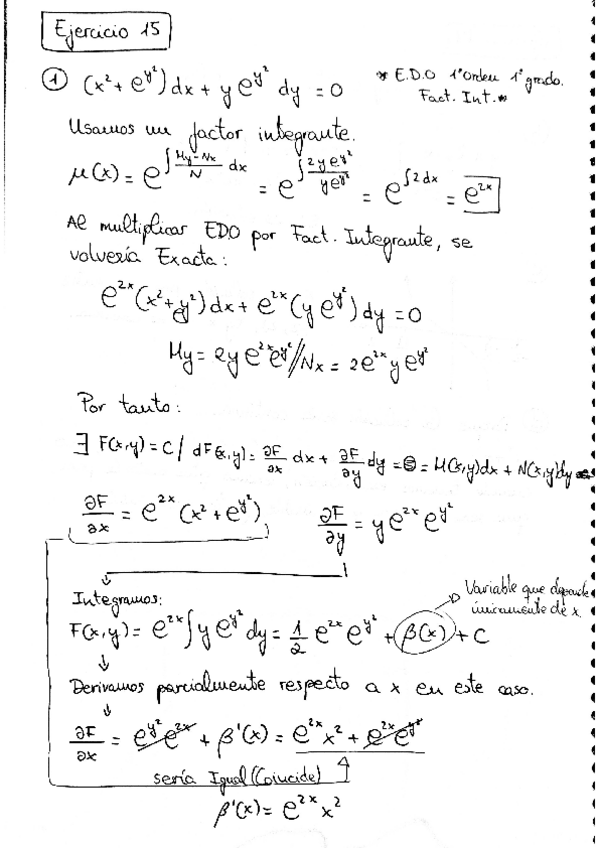 Ejercicio 15
① (x² + e^{y²}) dx + y e^{y²} dy = 0
* E.D.O 1ºOrden 1º grado.
Fact. Int. *
Usamos un factor integrante.
μ(x) = e^{∫ (My-Nx)/N dx} = e^{∫ 2y e^{y²} / y e^{y²}} = e^{∫2 dx} = e^{2x}
Al multiplicar EDO por Fact. Integrante, se
volvería Exacta:
e^{2x} (x² + e^{y²}) dx + e^{2x} (y e^{y²}) dy = 0
My = 2y e^{2x} e^{y²} // Nx = 2e^{2x} y e^{y²}
Por tanto:
∃ F(x,y) = C / dF(x,y) = ∂F/∂x dx + ∂F/∂y dy = 0 = M(x,y)dx + N(x,y)dy
∂F/∂x = e^{2x} (x² + e^{y²}) ∂F/∂y = y e^{2x} e^{y²}
Variable que depende
únicamente de x.
Integramos:
F(x,y) = e^{2x} ∫ y e^{y²} dy = 1/2 e^{2x} e^{y²} + β(x) + C
Derivamos parcialmente respecto a x en este caso.
∂F/∂x = e^{y²} e^{2x} + β'(x) = e^{2x} x² + e^{2x} e^{y²}
sería Igual (Coincide)
β'(x) = e^{2x} x²